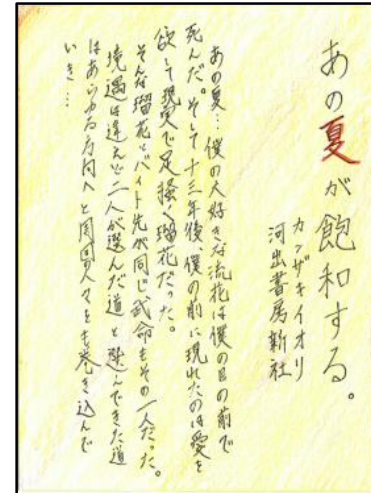 あの夏が飽和する。
カンザキイオリ
河出書房新社
あの夏…僕の大好きな流花は僕の目の前で
死んだ。そして十三年後、僕の前に現れたのは愛を
欲して現実で足掻く瑠花だった。
そんな瑠花とバイト先が同じ武命もその一人だった。
境遇は違えど二人が選んだ道と選んできた道
はあらゆる方向へと周囲の人々をも巻き込んで
いき…